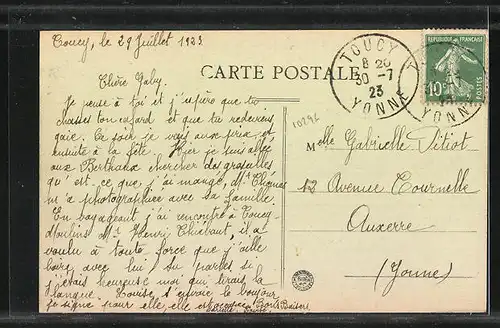 Toucy, le 29 Juillet 1923
Chère Gaby.
CARTE POSTALE
Je pense à toi et j'espère que tu
chasses ton cafard et que tu redeviens
gaie. Ce soir je vais aux prix et
ensuite à la fête. Hier je suis allée
aux Berthaux chercher des groseilles
qu'est-ce que j'ai mangé, Mr Thomas
m'a photographiée avec sa famille.
En voyageant j'ai rencontré à Toucy-
Moulins Mr Henri Thiébaut, il a
voulu à toute force que j'aille
boire avec lui, tu parles si
j'étais heureuse moi qui tirais la
langue. Louise t'envoie le bonjour
je signe pour elle, elle est occupée Bons Baisers
TOUCY
8 20
30 -7
23
YONNE
REPUBLIQUE FRANÇAISE
10c
POSTES
10296
Melle Gabrielle Pitiot
12 Avenue Tournelle
Auxerre
(Yonne)